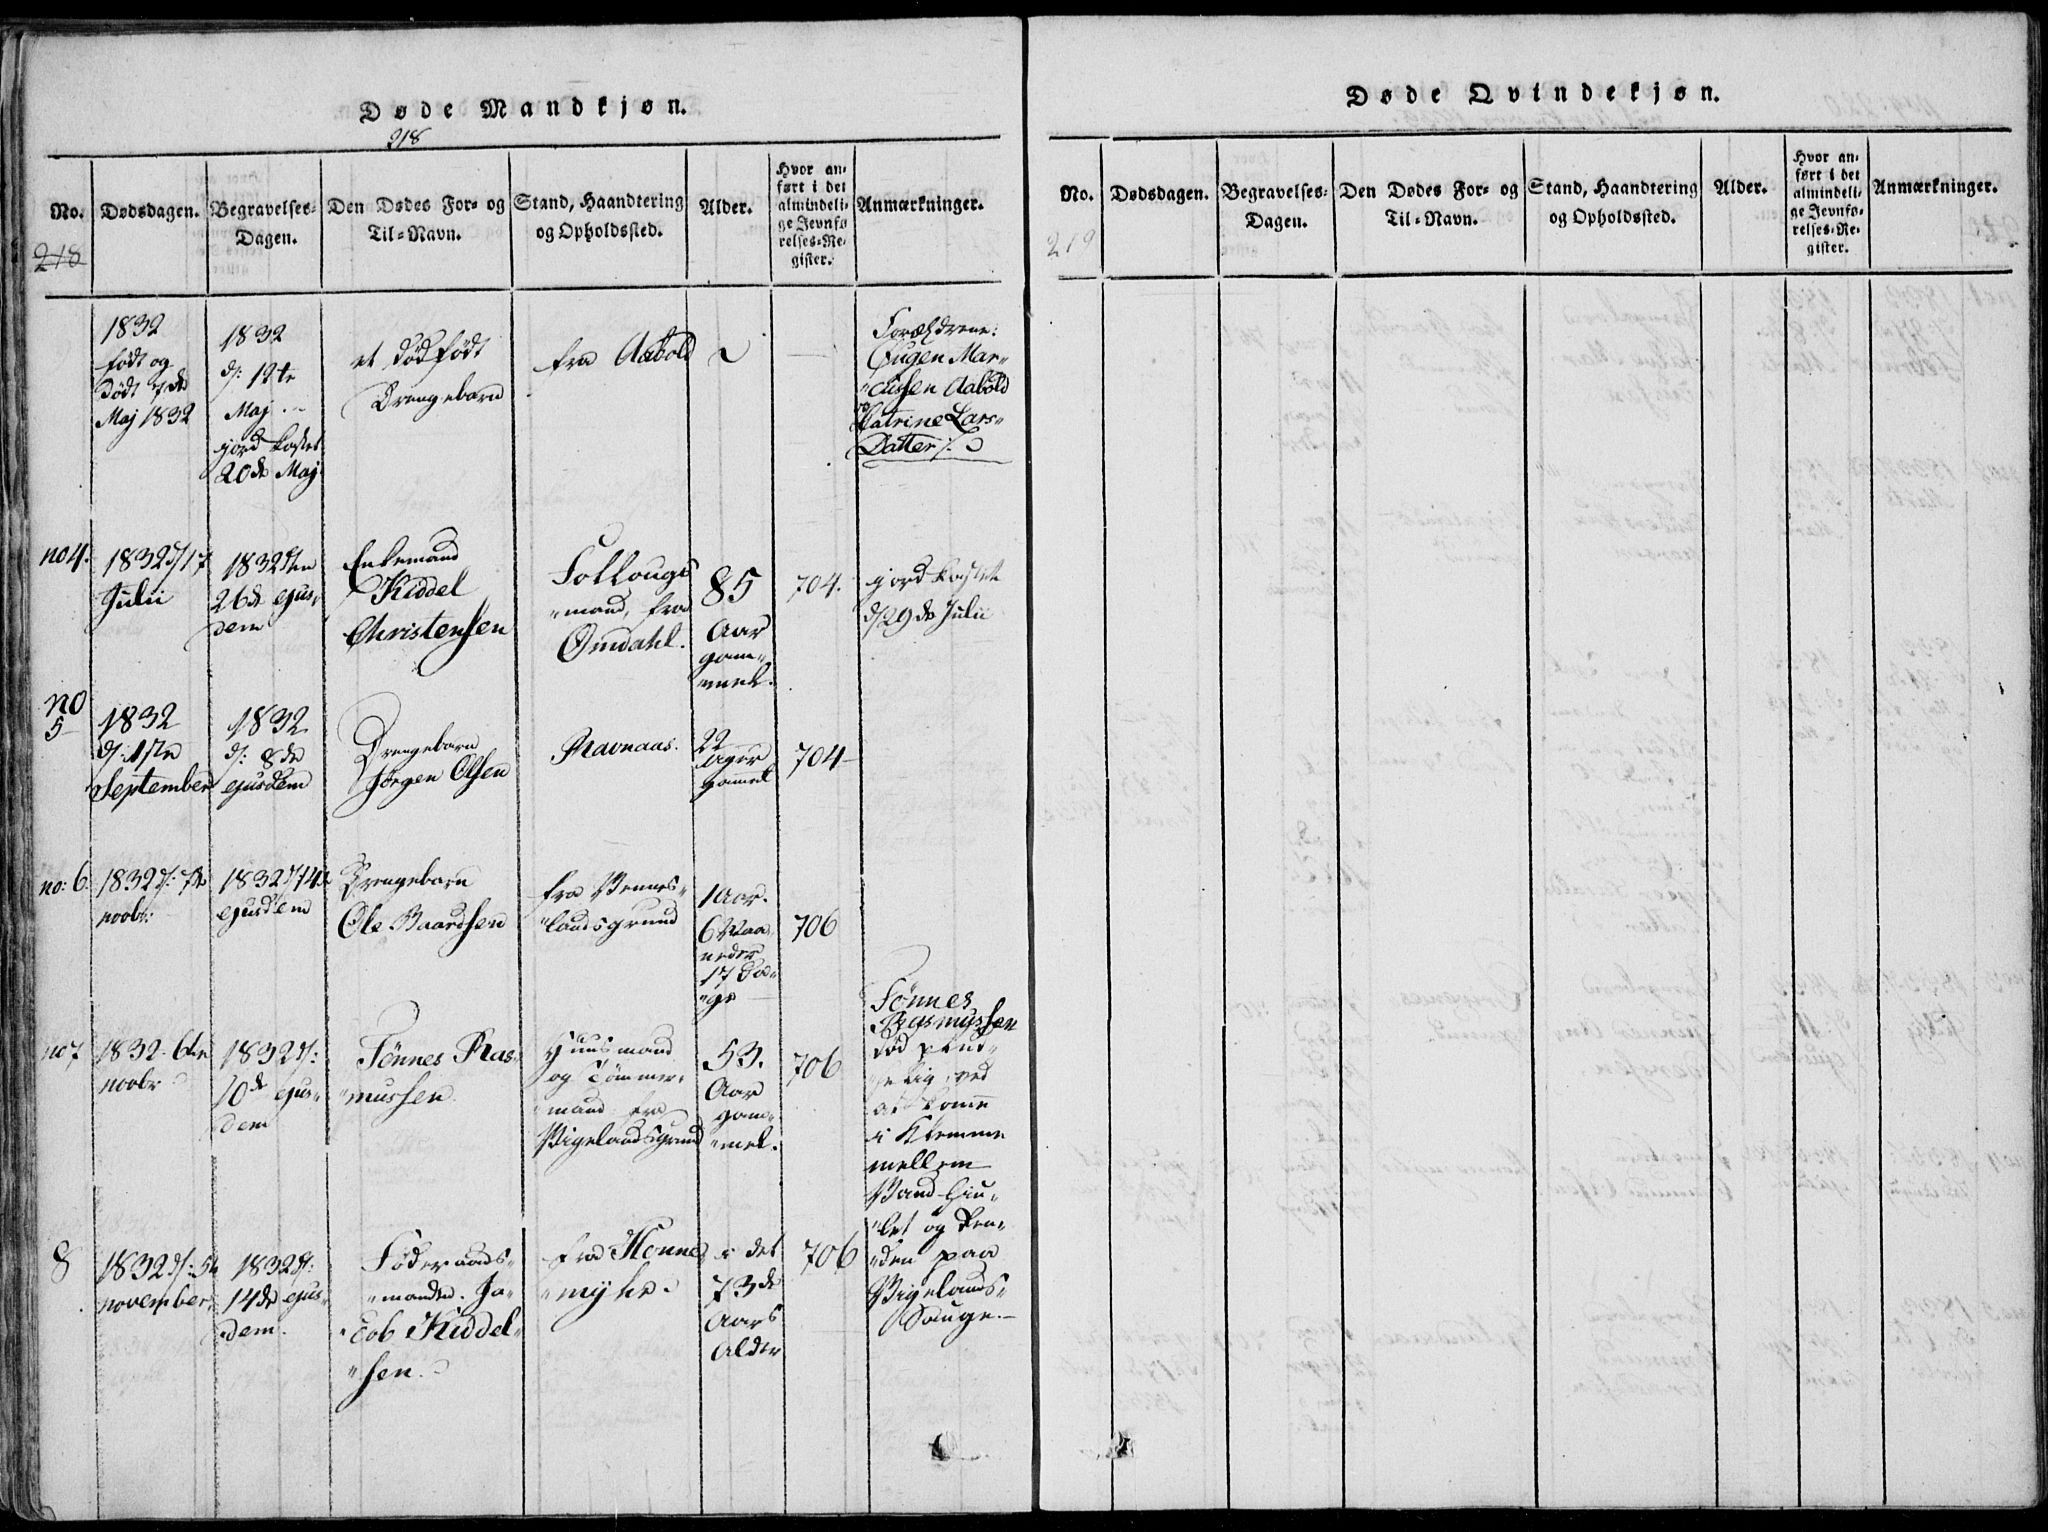 Døde Mandkjøn.
218
No.
218
Dødsdagen.
Begravelses-
Dagen.
Den Dødes For- og
Til-Navn.
Stand, Haandtering
og Opholdssted.
Alder.
Hvor an-
ført i det
almindeli-
ge Jevnfø-
relses-Re-
gister.
Anmærkninger.
1832
født og
Dödt 7de
Maj 1832
1832
d: 12te
Maj
jord kastet
20de Maj
et dødfödt
Drengebarn
fra Aabold
Forældrene:
Eugen Mar-
"cussen Aabold
Catrine Lars-
Datter
no 4.
1832 d/17
Julii
1832 den
26de ejus-
dem
Enkemand
Kiddel
Christensen
Follougs
"mand, fra
Omdahl.
85
Aar
gam-
mel.
704.
jord kastet
d/29de Julii
no
5
1832
d: 1ste
September
1832
d: 8de
ejusdem
Drengebarn
Jörgen Olsen
Ravnaas.
22
Uger
gammel
704
no: 6
1832 d: 7de
novbr:
1832 d/14de
ejusdem
Drengebarn
Ole Baardsen
fra Vennes-
"landsgrund
1 Aar.
6 Maa
neder
17 Da-
"ge
706
no 7
1832. 6te
novbr
1832 d:
10de ejus-
dem
Tönnes Ras-
"mussen.
Huusmand
og Tömmer-
mand fra
Vigelandsgrund
53.
Aar
gam-
"mel.
706
Tönnes
Rasmussen
död
ved
at komme
i Klemme
mellem
Vand-Hiu-
"let og Ren-
"den paa
Vigelands-
Sauge.
8
1832 d: 5te
november
1832 d:
14de ejus-
dem.
Föderaads-
"manden. Ja-
"cob Kiddel-
"sen.
fra Honne
"myhr
i det
73de
Aars
Alder
706
Døde Qvindekjøn.
No.
219
Dødsdagen.
Begravelses-
Dagen.
Den Dødes For- og
Til-Navn.
Stand, Haandtering
og Opholdssted.
Alder.
Hvor an-
ført i det
almindeli-
ge Jevnfø-
relses-Re-
gister.
Anmærkninger.